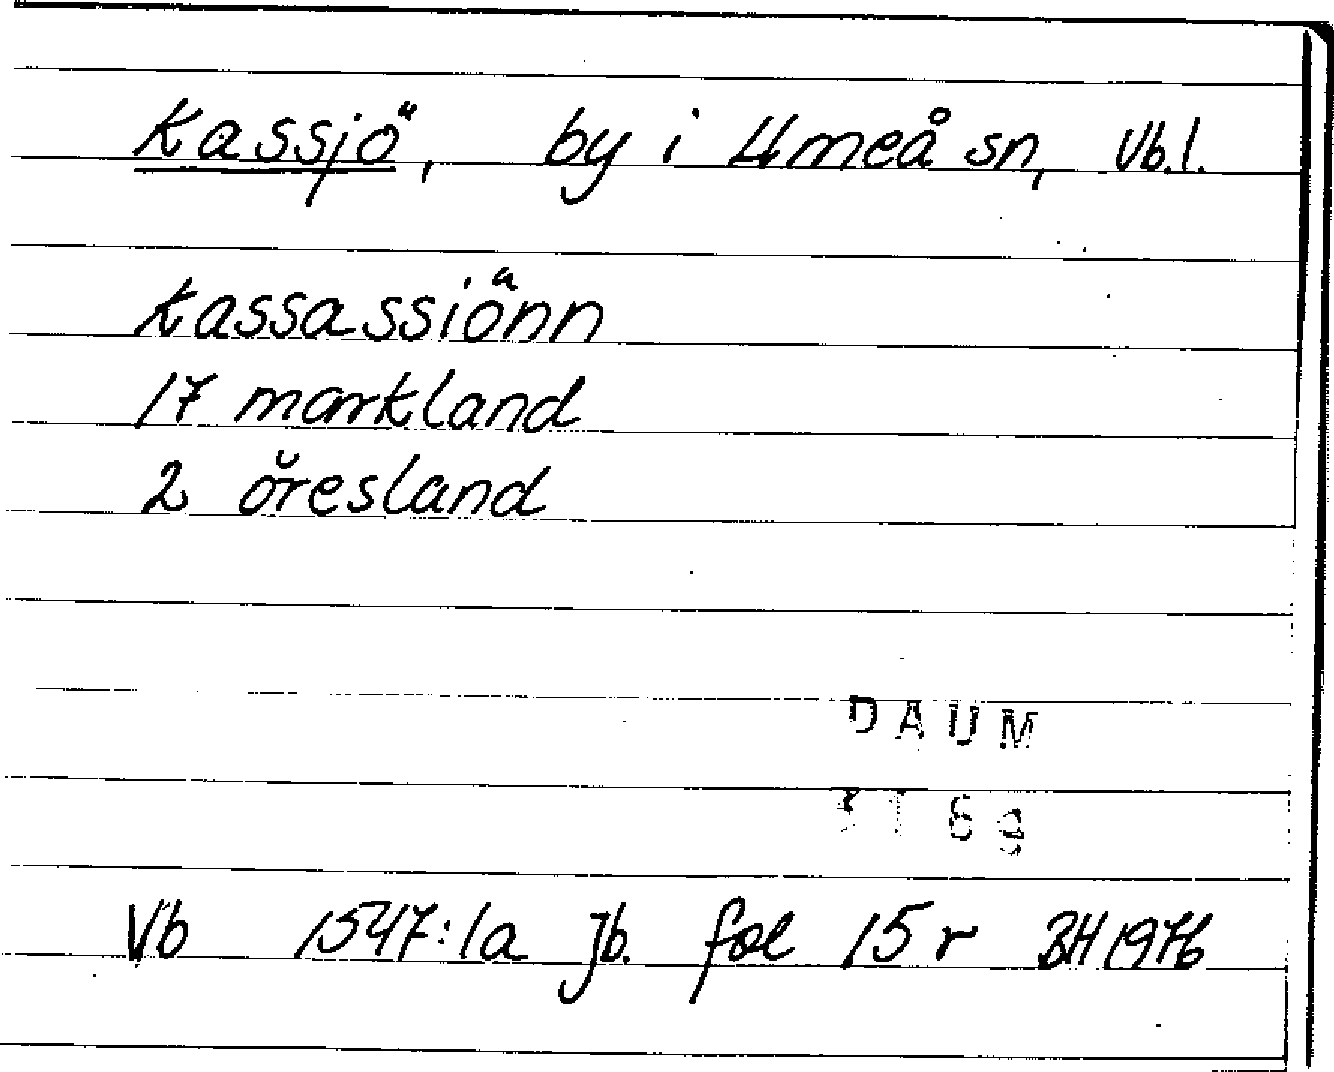 Kassjö, by i Umeå sn, Vb.l.
Kassassiönn
17 markland
2 öresland
DAUM
Vb 1547:1a Jb. fol 15 r BH 1976